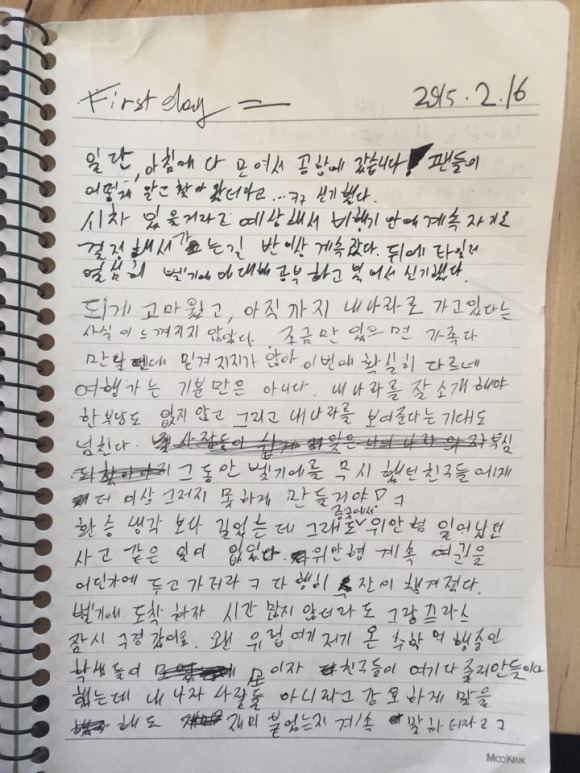 First day =
2015. 2. 16
일단, 아침에 다 모여서 공항에 갔습니다! 팬들이
어떻게 알고 찾아 왔더라고...ㅋㅋ 신기했다.
시차 있을거라고 예상해서 비행기 안에 계속 자기로
결정해서 가는길 반이상 계속 잤다. 뒤에 타일러
열심히 벨기에에 대해 공부하고 있어서 신기했다.
되게 고마웠고, 아직까지 내나라로 가고있다는
사실이 느껴지지 않았다. 조금만 있으면 가족다
만날텐데 믿겨지지가 않아 이번에 확실히 다르네
여행가는 기분만은 아니다. 내나라를 잘 소개해야
한 부담도 없지 않고 그리고 내나라를 보여준다는 기대도
넘친다.
그동안 벨기에를 무시했던 친구들에게
더 이상 그러지 못하게 만들거야! ㅋ
환승 생각보다 길었는데 그래도 중국에서 위안형 일어났던
사고 같은 일이 없었다. 위안형 계속 여권을
어딘가에 두고 가더라 ㅋ 다행히 잘 챙겨졌다.
벨기에 도착하자 시간 많지 않더라도 그랑플라스
잠시 구경갔어요. 왠 유럽 여기저기 온 수학여행중인
학생들이 모이자 친구들이 여기다 줄리안들이다
했는데 내 나라 사람들 아니라고 강요하게 말을
해도 재미 붙었는지 계속 말하더라고 ㅋ
MOOKEUK